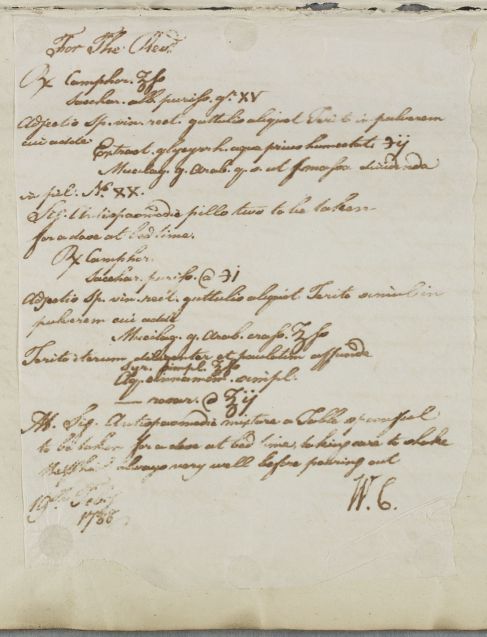 For The Revd.
Rx Camphor. ʒſs
Sacchar. alb. puriss. gr. XV
Adjectis Sp. vin. rect. guttulis aliquot Terito in pulverem
cui adde
Extract. glycyrrh. aqua prius humectati ℈ij
Mucilag. g. Arab. q. s. ut f. massa dividenda
in pil. No. XX.
Sig. Antispasmodic pills two to be taken
for a dose at bed time.
Rx Camphor.
Sacchar. puriss. @ ℈j
Adjectis Sp. vin. rect. guttulis aliquot Terito simul in
pulverem cui adde
Mucilag. g. Arab. crass. ℥ſs
Terito iterum diligenter et paulatim affunde
Syr. simpl. ℥ſs
Aq. cinnamom. simpl.
— rosar. @ ℥ij
M. Sig. Antispasmodic mixture a Table spoonful
to be taken for a dose at bed time, taking care to shake
the always very well before pouring out
W. C.
19th Feby
1788